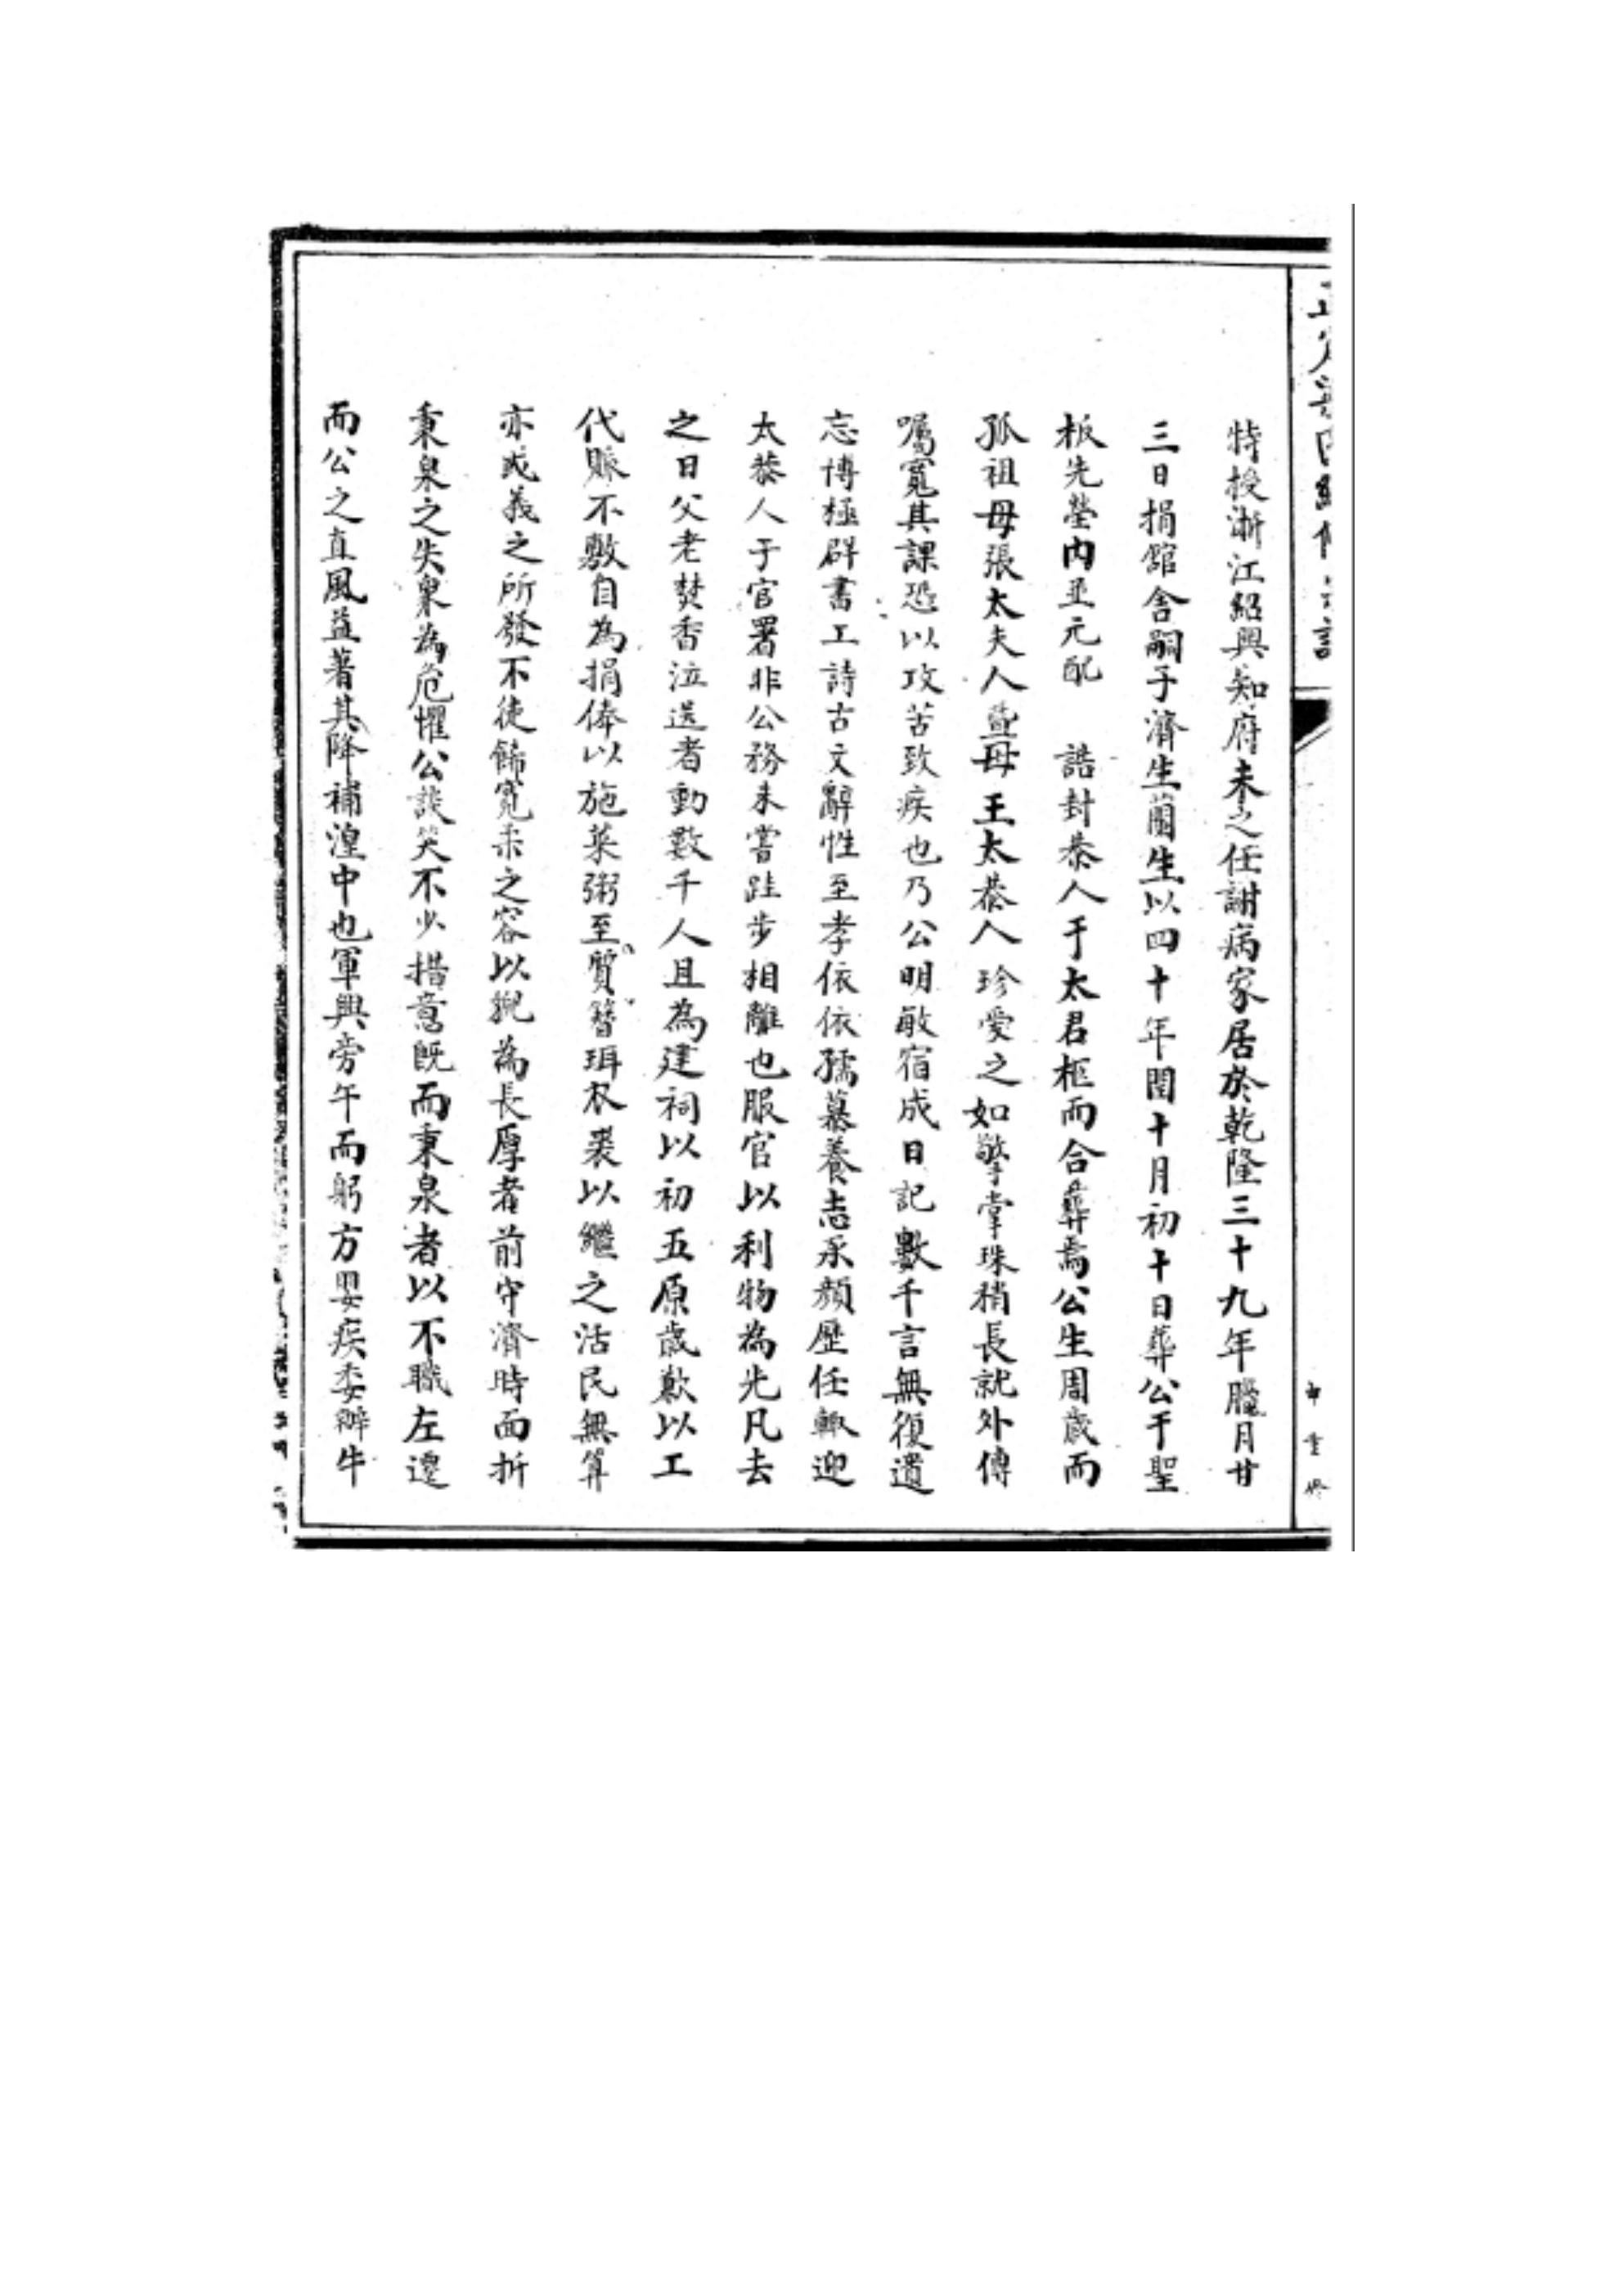 特授浙江紹興知府未之任謝病家居於乾隆三十九年臘月廿
三日捐館舍嗣子濟生蘭生以四十年閏十月初十日葬公于聖
板先塋內並元配 誥封恭人于太君柩而合葬焉公生周歲而
孤祖母張太夫人暨母王太恭人珍愛之如擎掌珠稍長就外傅
囑寬其課恐以攻苦致疾也乃公明敏宿成日記數千言無復遺
忘博極群書工詩古文辭性至孝依依孺慕養志承顏歷任輒迎
太恭人于官署非公務未嘗跬步相離也服官以利物為先凡去
之日父老焚香泣送者動數千人且為建祠以初五原歲歉以工
代賑不敷自為捐俸以施菜粥至質簪珥衣裘以繼之活民無算
亦惑義之所發不徒餙寬柔之容以貌為長厚者前守濟時面折
秉臬之失衆為危懼公談笑不少措意既而秉泉者以不職左遷
而公之直風益著其降補湟中也軍興旁午而躬方嬰疾委辦牛